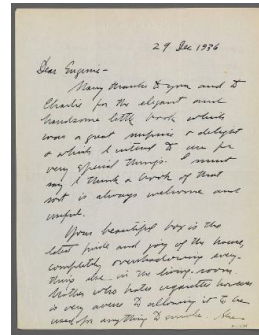 29 Dec 1936
Dear Eugenie -
Many thanks to you and to
Charlie for the elegant and
handsome little book which
was a great surprise & delight
& which I intend to use for
very special things. I must
say I think a book of that
sort is always welcome and
useful.
Your beautiful box is the
latest pride and joy of the house,
completely overshadowing every-
thing else in the living-room.
Mother who hates cigarette boxes
is very averse to allowing it to be
used for anything to smoke. She